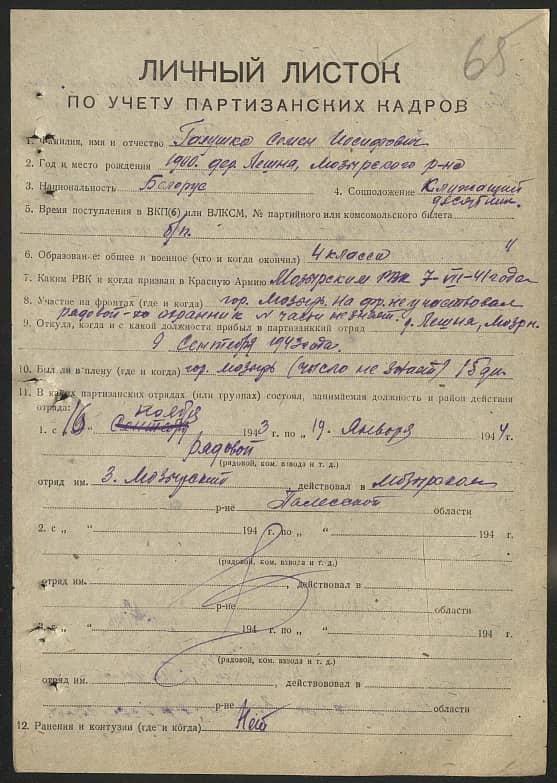 65
ЛИЧНЫЙ ЛИСТОК
ПО УЧЕТУ ПАРТИЗАНСКИХ КАДРОВ
1. Фамилия, имя и отчество Семен Иосифович
2. Год и место рождения дер. Лешня, Мозырского р-на
3. Национальность Белорус 4. Соцположение Служащий
5. Время поступления в ВКП(б) или ВЛКСМ, № партийного или комсомольского билета
б/п.
6. Образование: общее и военное (что и когда окончил) 4 класса
7. Каким РВК и когда призван в Красную Армию Мозырским РВК 7-VII-41 года
8. Участие на фронтах (где и когда) гор. Мозырь на фр. не участвовал
рядовой охранник N части не знает.
9. Откуда, когда и с какой должности прибыл в партизанский отряд д. Лешня, Мозрн.
9 Сентября 1943 года.
10. Был ли в плену (где и когда) гор. Мозырь (число не знает) 15 дн.
11. В каких партизанских отрядах (или группах) состоял, занимаемая должность и район действия
отряда: ноября
1. с „16“ Сентября 1943 г. по „19“ Января 1944 г.
рядовой
(рядовой, ком. взвода и т. д.)
отряд им. 3. Мозырский, действовал в Мозырском
р-не Полесской области
2. с „ “ 194 г. по „ “ 194 г.
(рядовой, ком. взвода и т. д.)
отряд им. , действовал в
р-не области
3. с „ “ 194 г. по „ “ 194 г.
(рядовой, ком. взвода и т. д.)
отряд им. , действовал в
р-не области
12. Ранения и контузии (где и когда) Нет